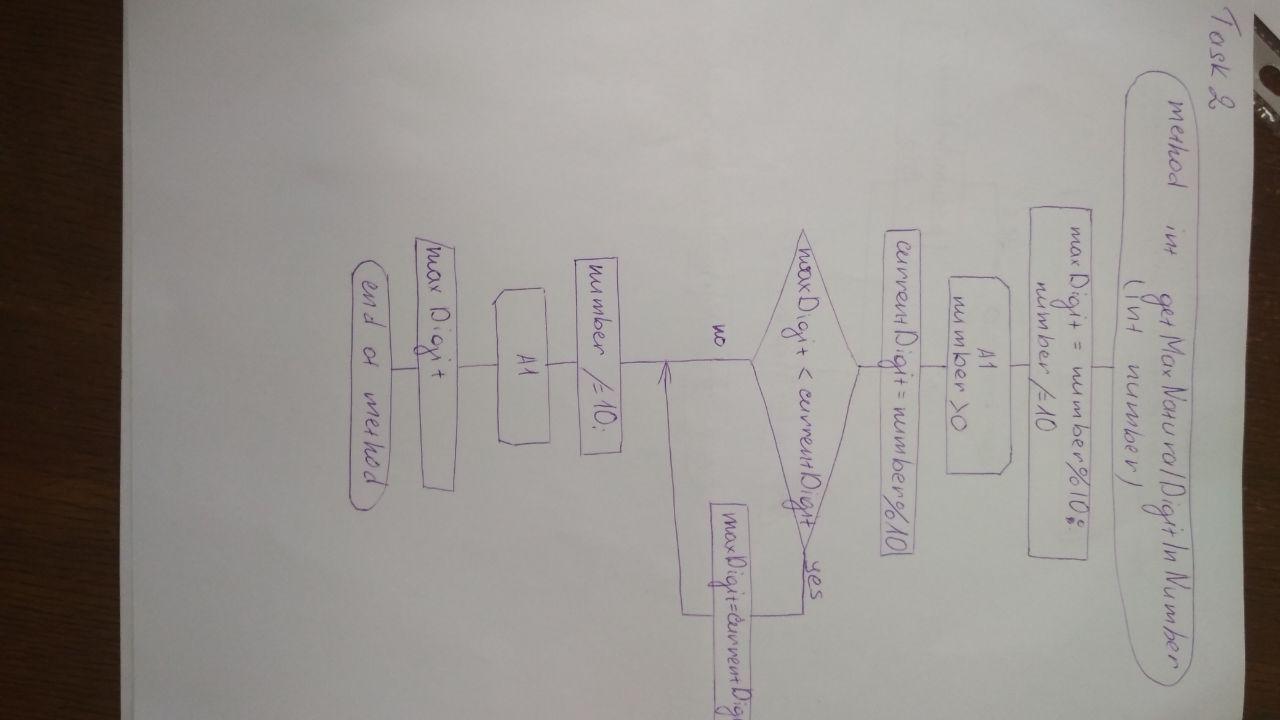 Task 2
method int getMaxNaturalDigitInNumber
(int number)
maxDigit = number%10;
number /=10
A1
number >0
currentDigit = number%10
maxDigit < currentDigit
yes
no
maxDigit=currentDigi
number /=10;
A1
maxDigit
end of method